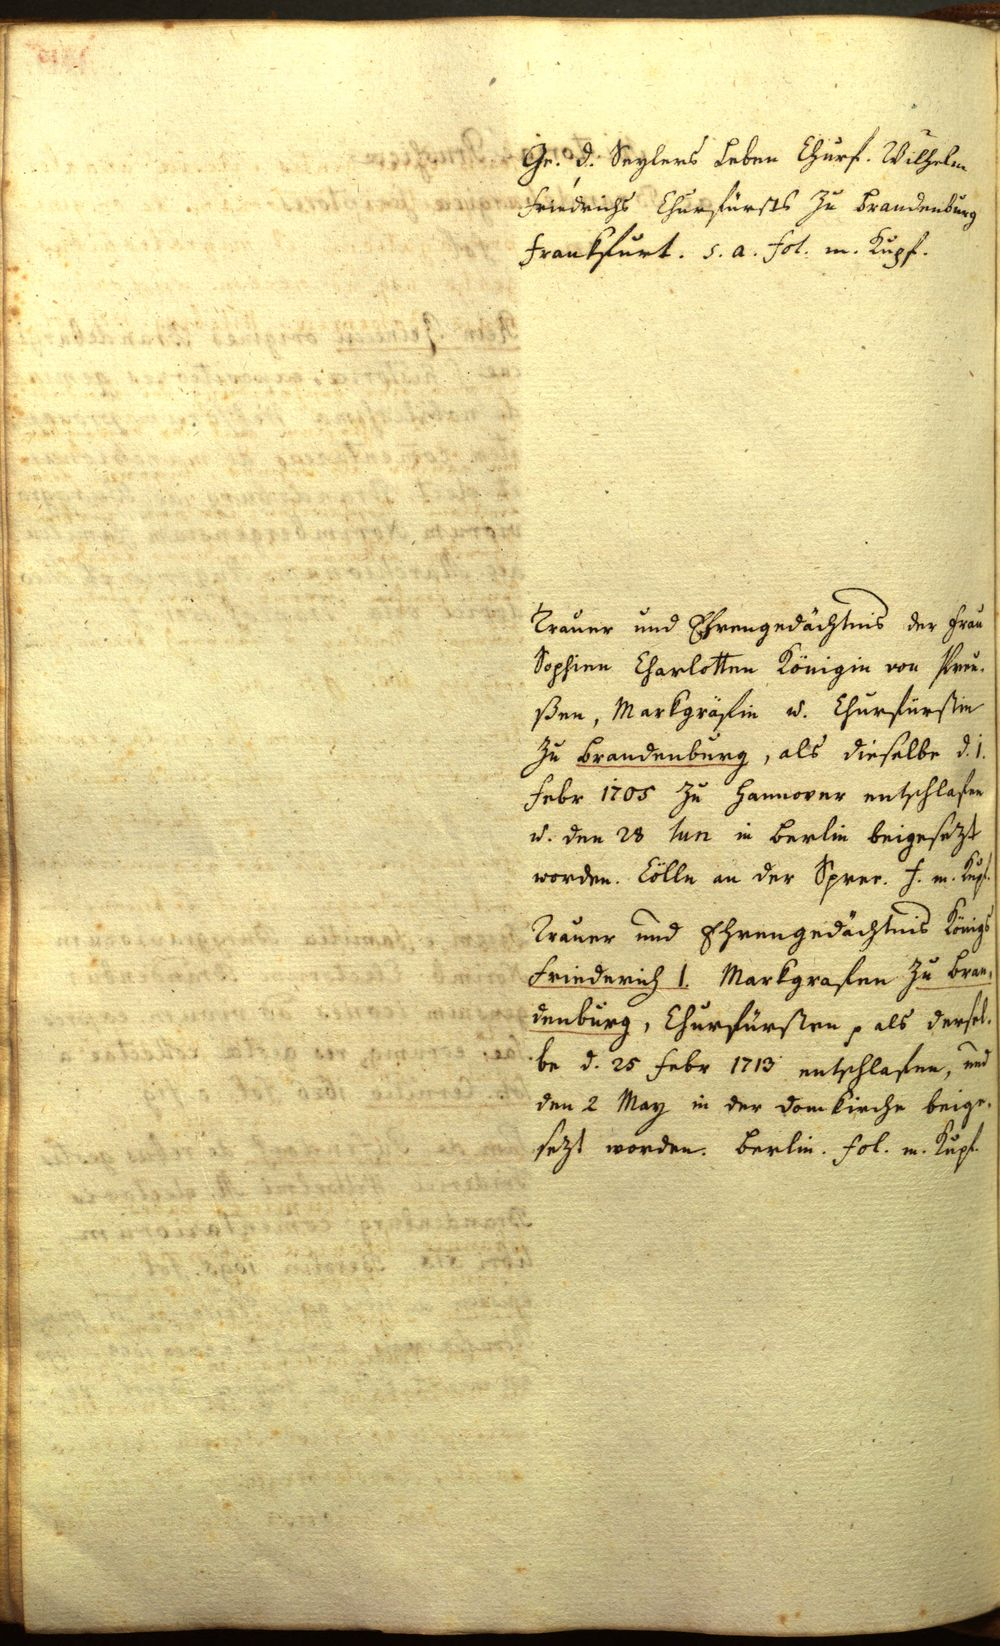 Ge. d. Seylers Leben Churf. Wilhelm
Friedrichs Churfürsts zu Brandenburg
Frankfurt. s. a. fol. m. Kupf.
Trauer und Ehrengedächtnis der Frau
Sophien Charlotten Königin von Preu-
ßen, Markgräfin u. Churfürstin
zu Brandenburg, als dieselbe d. 1.
Febr 1705 zu Hannover entschlafen
u. den 28 Iun in Berlin beigesetzt
worden. Cölln an der Spree. f. m. Kupf.
Trauer und Ehrengedächtnis Königs
Friederich I. Markgrafen zu Bran-
denburg, Churfürsten p als dersel-
be d. 25 Febr 1713 entschlafen, und
den 2 May in der Domkirche beige-
setzt worden. Berlin. fol. m. Kupf.